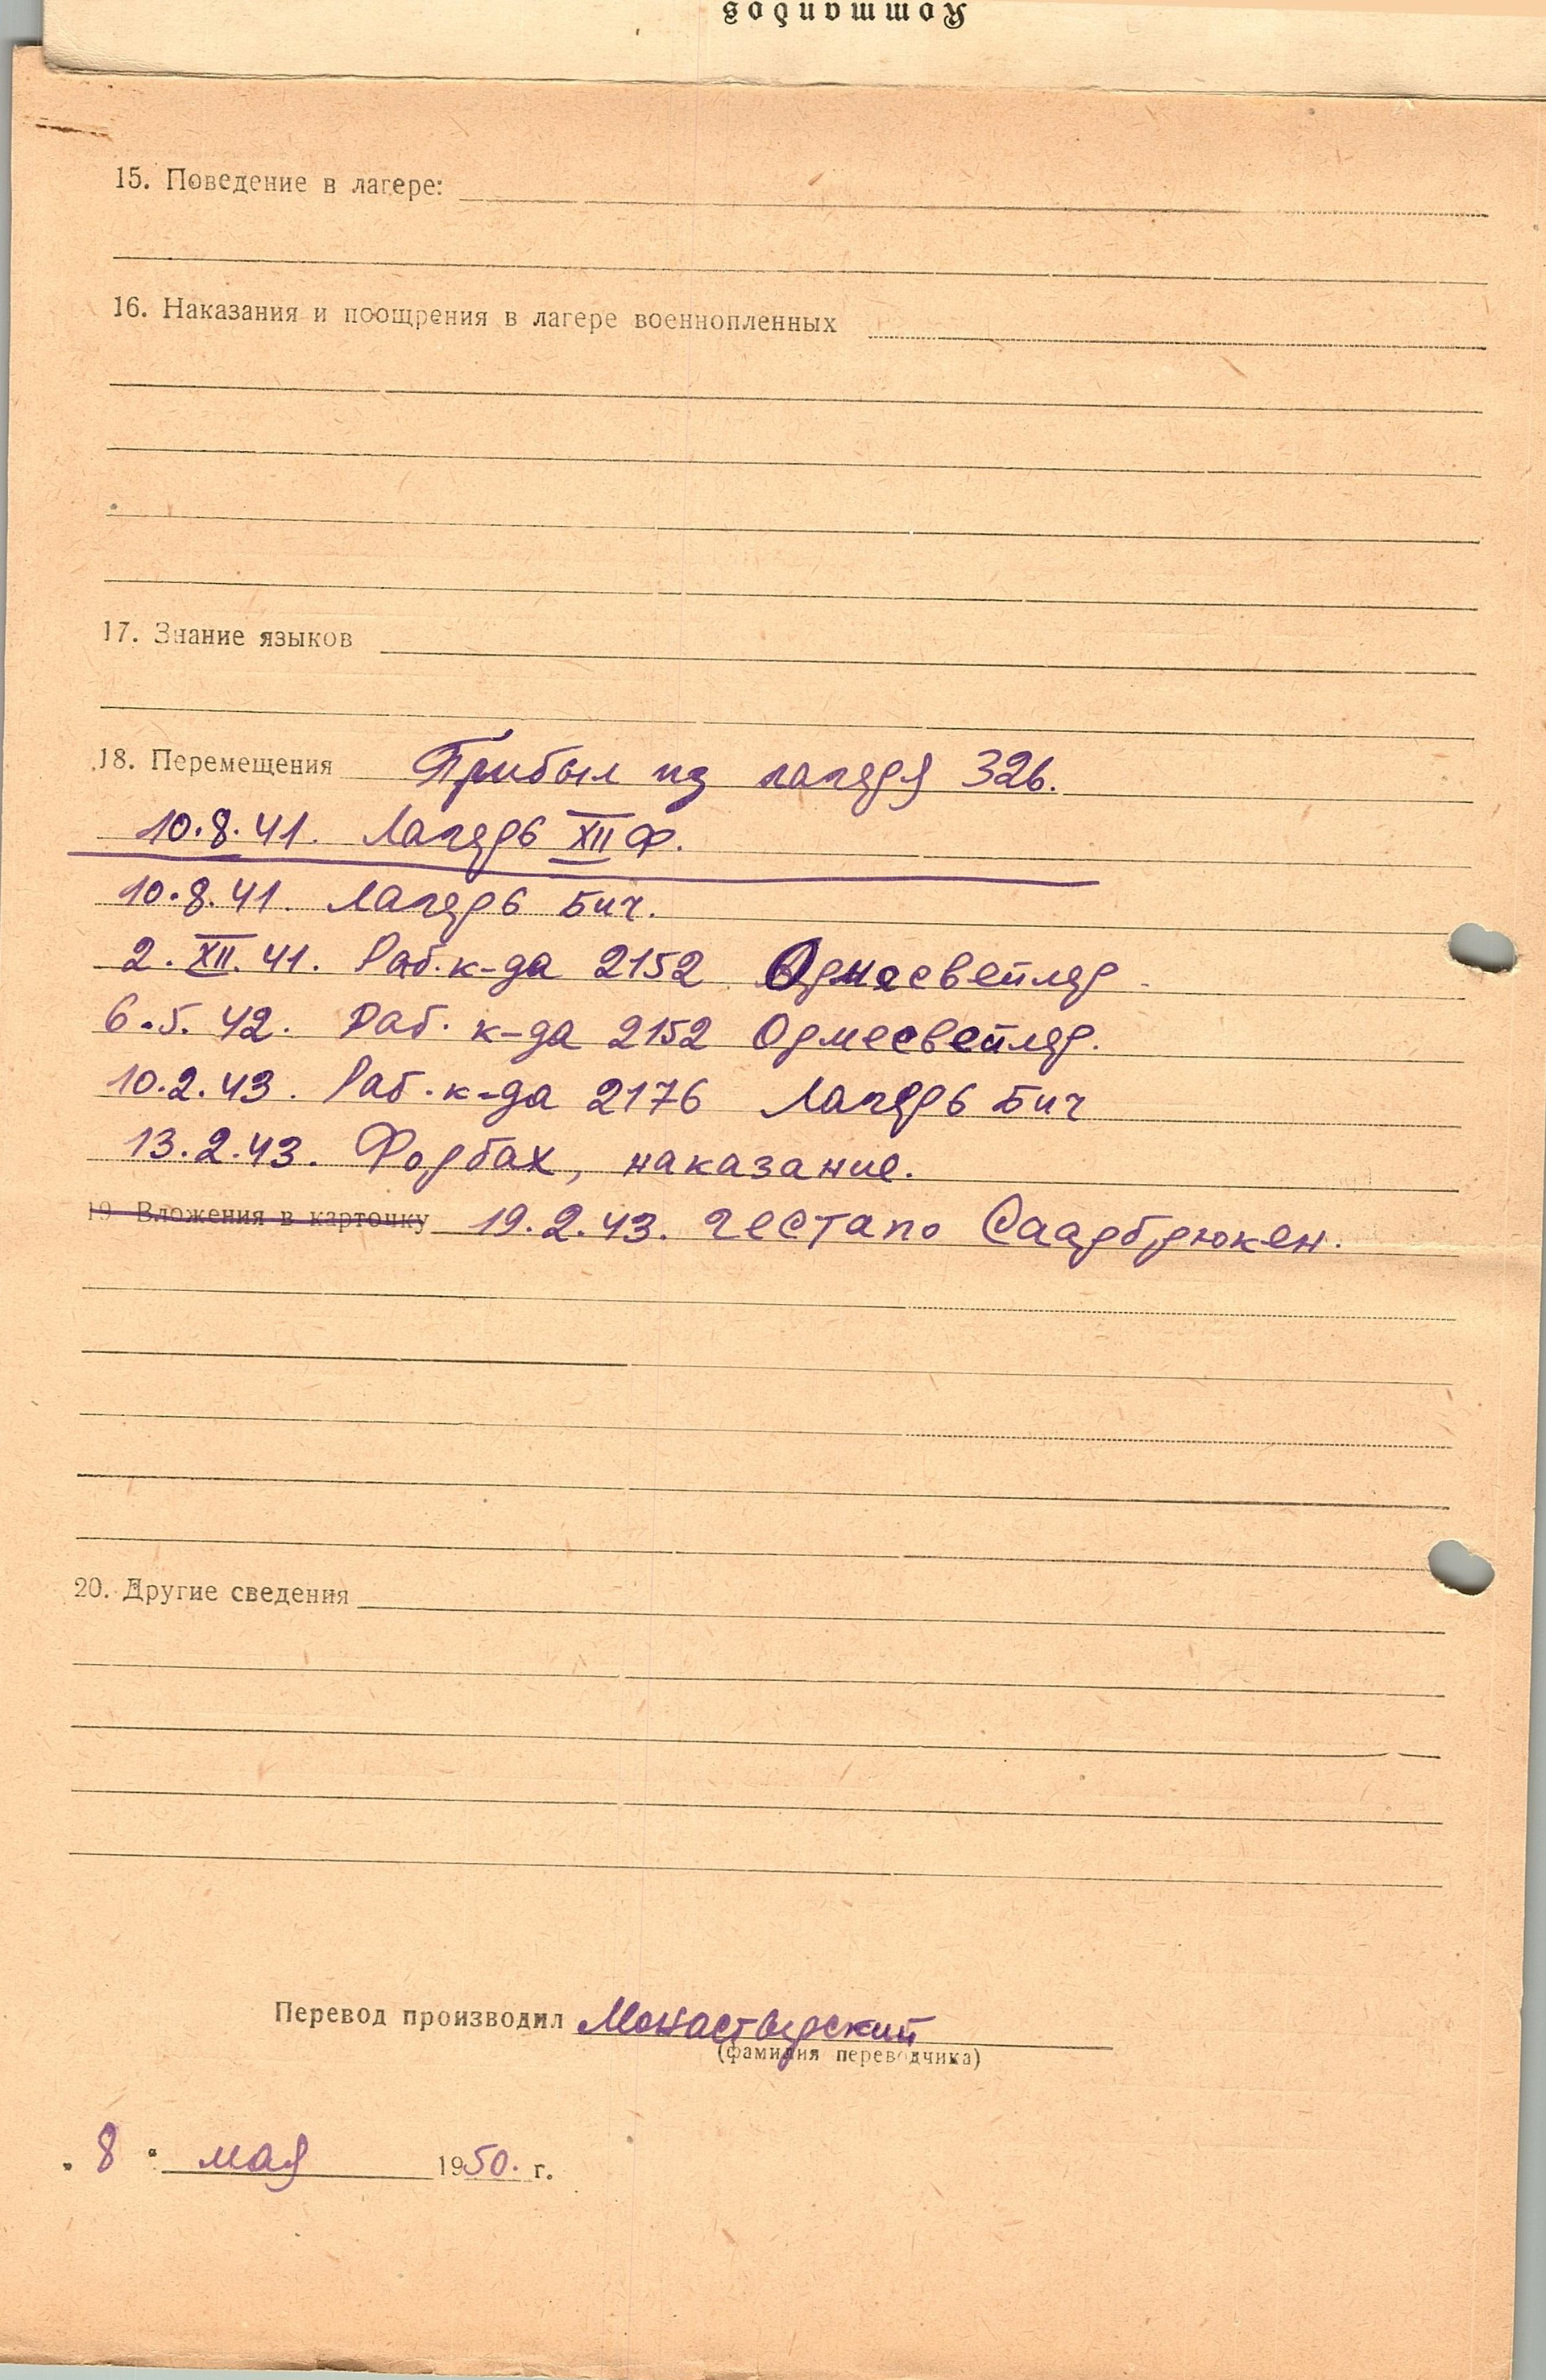 Kommandos
15. Поведение в лагере:
16. Наказания и поощрения в лагере военнопленных
17. Знание языков
18. Перемещения Прибыл из лагеря 326.
10.8.41. Лагерь XII Ф.
10.8.41. Лагерь Бич.
2.XII.41. Раб. к-да 2152 Ормесвейлер.
6.5.42. Раб. к-да 2152 Ормесвейлер.
10.2.43. Раб. к-да 2176 Лагерь Бич
13.2.43. Форбах, наказание.
19 Вложения в карточку 19.2.43. гестапо Саарбрюкен.
20. Другие сведения
Перевод производил Монастырский
(фамилия переводчика)
„ 8 " мая 1950. г.